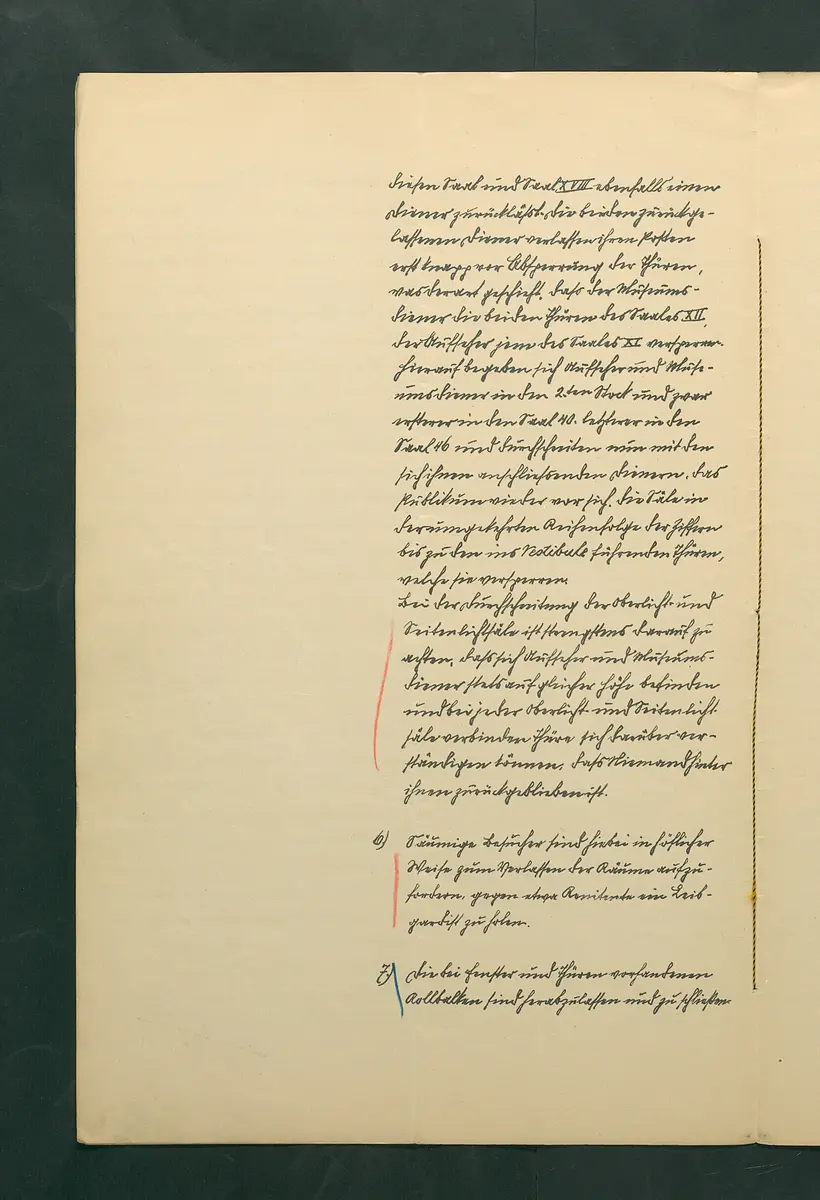 diesen Saal und Saal XVIII ebenfalls einen
Diener zurückläßt. Die beiden zurückge-
lassenen Diener verlassen ihren Posten
erst knapp vor Absperrung der Thüren,
was derart geschieht, dass der Museums-
diener die beiden Thüren des Saales XII,
der Aufseher jene des Saales XI versperren.
Hierauf begeben sich Aufseher und Muse-
umsdiener in den 2.ten Stock und zwar
ersterer in den Saal 40. letzterer in den
Saal 46 und durchschreiten nun mit den
sich ihnen anschliessenden Dienern, das
Publikum wieder vor sich, die Säle in
der umgekehrten Reihenfolge der Ziffern
bis zu den ins Vestibule führenden Thüren,
welche sie versperren.
Bei der Durchschreitung der Oberlicht- und
Seitenlichtsäle ist strengstens darauf zu
achten, dass sich Aufseher und Museums-
diener stets auf gleicher Höhe befinden
und bei jeder Oberlicht- und Seitenlicht-
säle verbinden Thüre sich darüber ver-
ständigen können, dass Niemand hinter
ihnen zurückgeblieben ist.
6) Säumige Besucher sind hiebei in höflicher
Weise zum Verlassen der Räume aufzu-
fordern, gegen etwa Renitente ein Leib-
gardist zu holen.
7) Die bei Fenster und Thüren vorhandenen
Rollbalken sind herabzulassen und zu schließen.